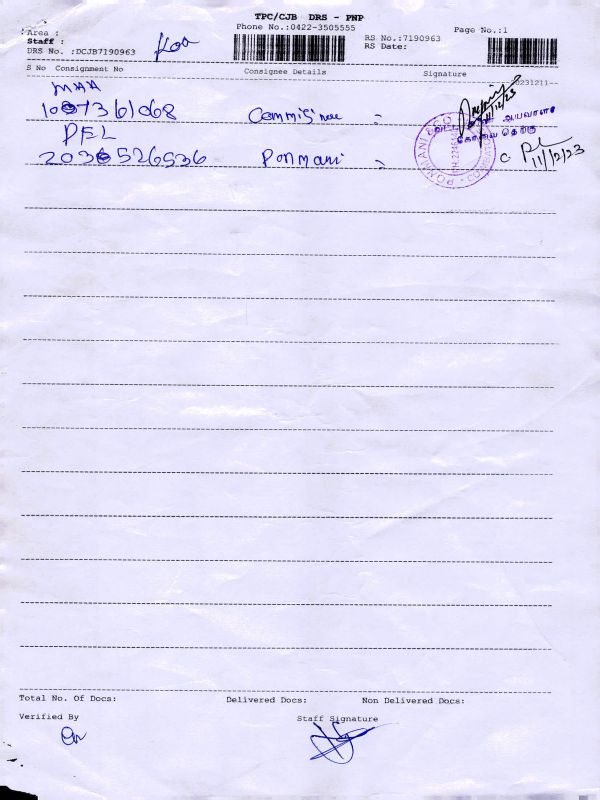 TPC/CJB DRS - PNP
Phone No.:0422-3505555
Page No.:1
Area :
Staff :
RS No.:7190963
DRS No. :DCJB7190963
RS Date:
S No Consignment No Consignee Details Signature
MAA
Commisinee
PEL
2036526536 Ponmani
11/12/23
11/12/23
Total No. Of Docs: Delivered Docs: Non Delivered Docs:
Verified By Staff Signature